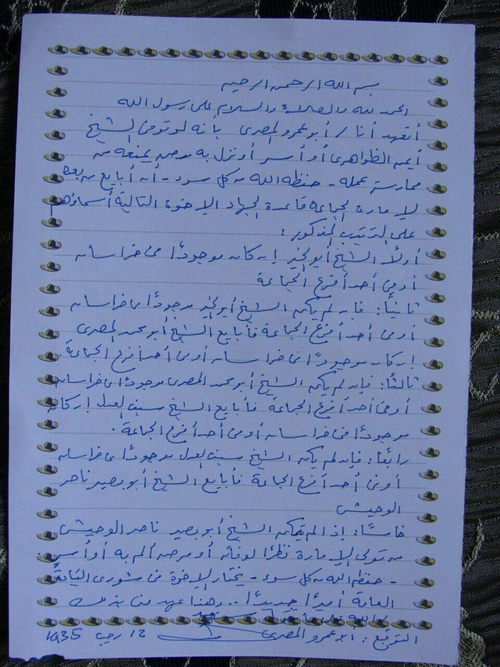 بسم الله الرحمن الرحيم
الحمد لله والصلاة والسلام على رسول الله
أتعهد أنا / أبو عمرو المصري بأنه لو توفى الشيخ
أيمن الظواهري أو أسر أو نزل به مرض يمنعه من
ممارسة عمله - حفظه الله من كل سوء - أن أبايع من بعده
لإمارة لجماعة قاعدة الجهاد الإخوة التالية أسماؤهم
على الترتيب المذكور :
أولًا: الشيخ أبو الخير إن كان موجودًا في خراسان
أو في أحد أفرع الجماعة
ثانيًا: فإن لم يكن الشيخ أبو الخير موجودًا في خراسان
أو في أحد أفرع الجماعة فأبايع الشيخ أبو محمد المصري
إن كان موجودًا في خراسان أو في أحد أفرع الجماعة
ثالثًا: فإن لم يكن الشيخ أبو محمد المصري موجودًا في خراسان
أو في أحد أفرع الجماعة فأبايع الشيخ سيف العدل إن كان
موجودًا في خراسان أو في أحد أفرع الجماعة .
رابعًا: فإن لم يكن الشيخ سيف العدل موجودًا في خراسان
أو في أحد أفرع الجماعة فأبايع الشيخ أبو بصير ناصر
الوحيشي
خامسًا: إذا لم يتمكن الشيخ أبو بصير ناصر الوحيشي
من تولي الإمارة نظرًا لوفاته أو مرض ألم به أو أسر
- حفظه الله من كل سوء - يختار الإخوة في شورى النيابة
العامة أميرًا جديدًا .. وهذا عهد مني بذلك
والله
التوقيع : أبو عمرو المصري 12 رجب 1435